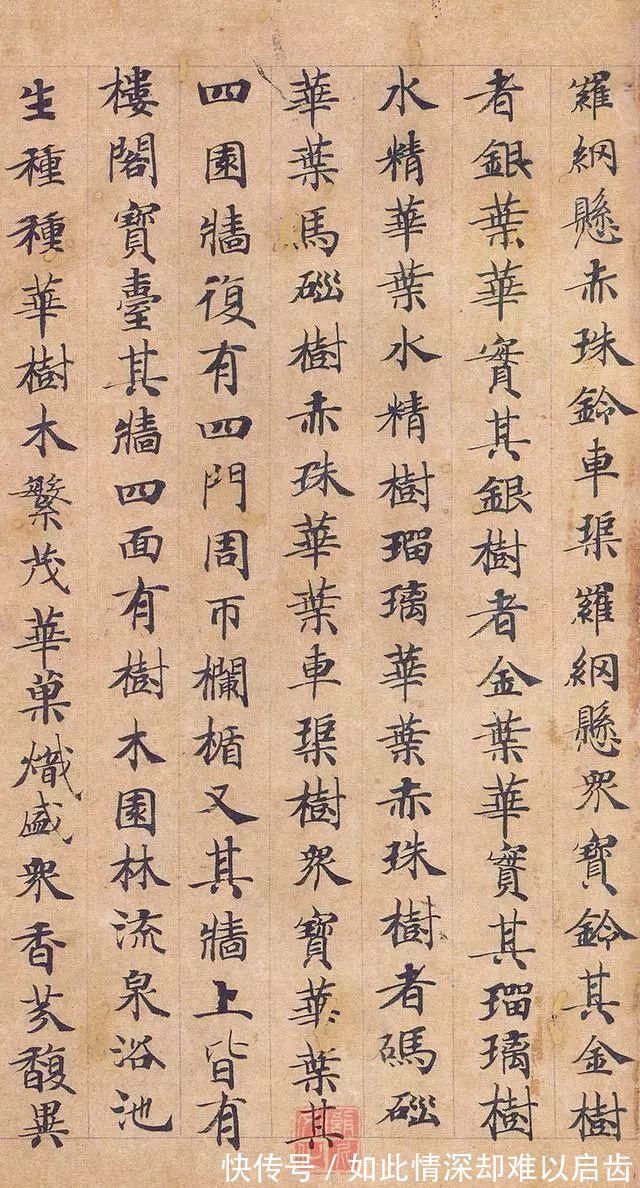 羅網懸赤珠鈴車𤦲羅網懸眾寶鈴其金樹
者銀葉華實其銀樹者金葉華實其瑠璃樹
水精華葉水精樹瑠璃華葉赤珠樹者碼碯
華葉馬碯樹赤珠華葉車𤦲樹眾寶華葉其
四園牆復有四門周帀欄楯又其牆上皆有
樓閣寶臺其牆四面有樹木園林流泉浴池
生種種華樹木繁茂華菓熾盛眾香芬馥異
快传号/如此情深却难以启齿